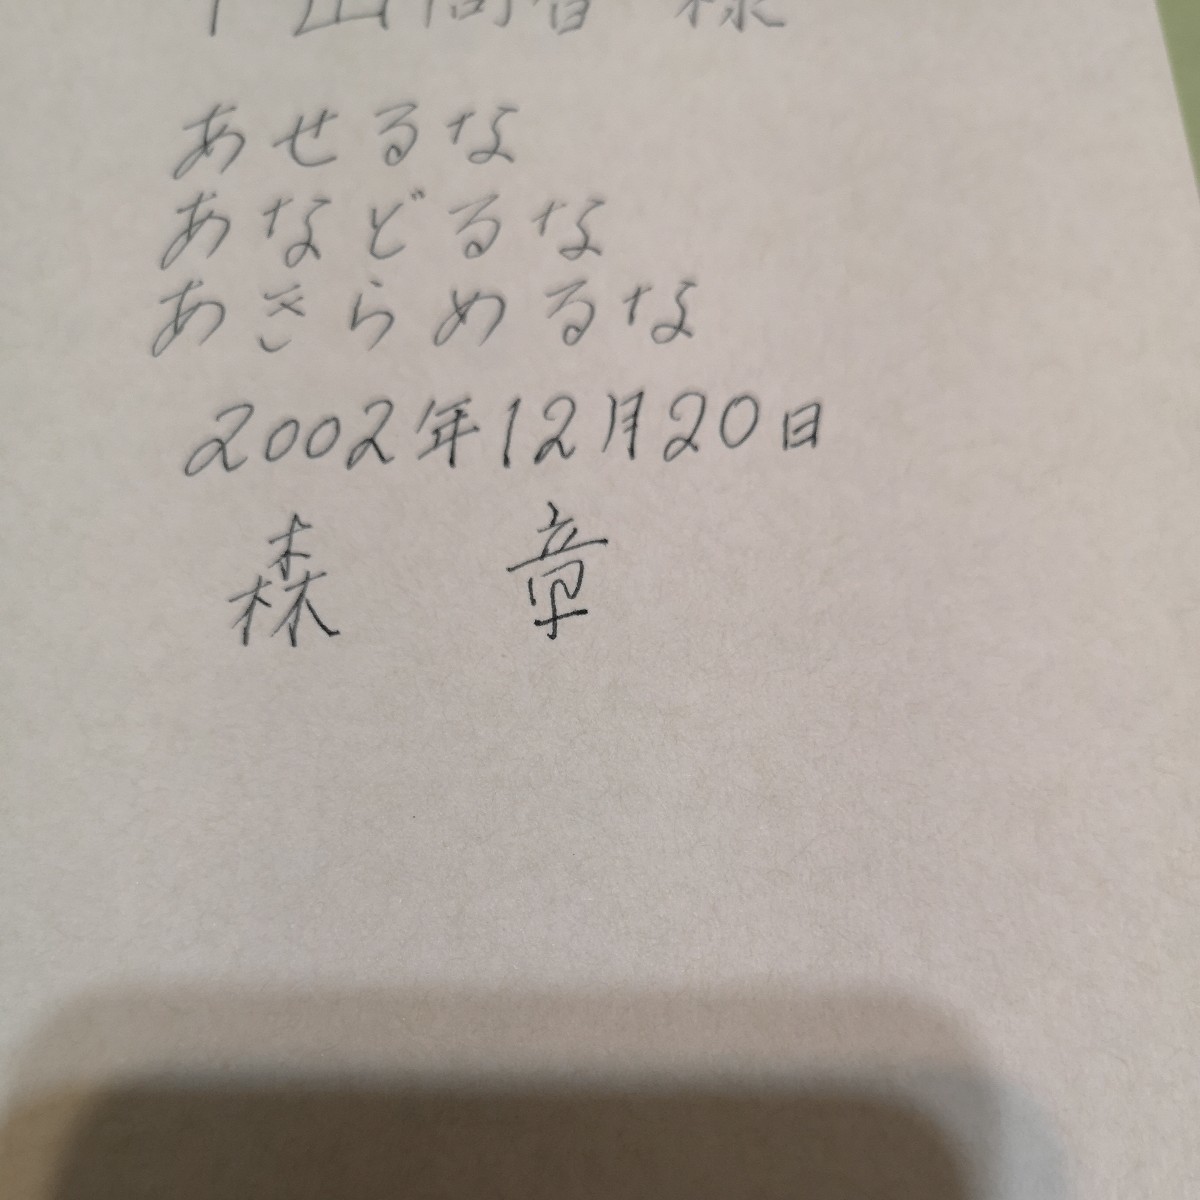 様
あせるな
あなどるな
あきらめるな
2002年12月20日
森 章